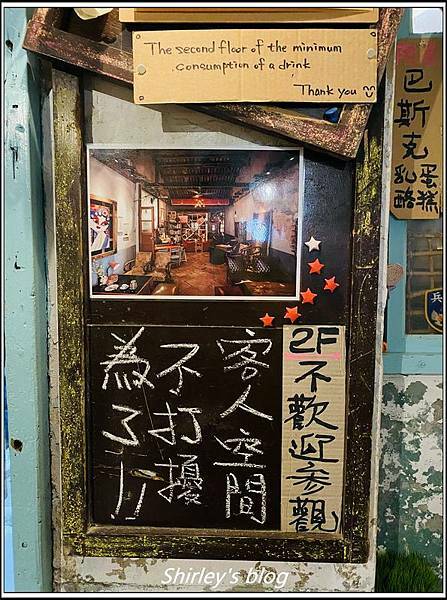 The second floor of the minimum
consumption of a drink
Thank you
巴斯克
乳酪
蛋糕
為了!!
不打擾
客人空間
2F不歡迎參觀
兵
Shirley's blog